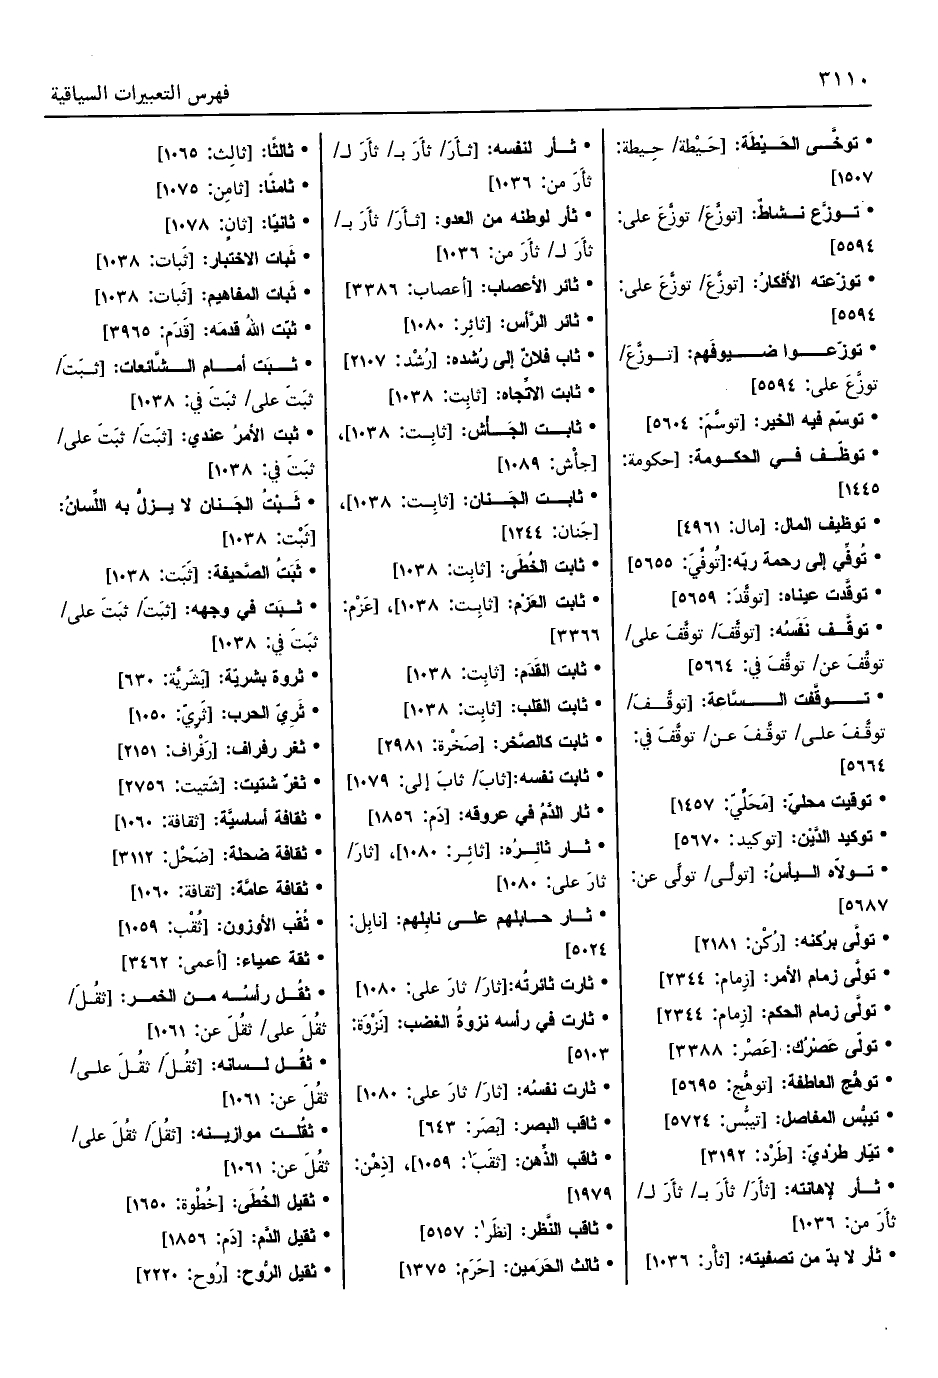 ٣١١٠
فهرس التعبيرات السياقية
• توخَّى الحَيْطَة: [حَيْطة/ حِيطة:
١٥٠٧]
• تـوزّع نـشاطٌ: [توزَّعَ/ توزَّعَ على:
٥٥٩٤]
• توزّعته الأفكارُ: [توزَّعَ/ توزَّعَ على:
٥٥٩٤]
• توزّعـــوا ضـــيوفَهم: [تـوزَّعَ/
توزَّعَ على: ٥٥٩٤]
• توسّم فيه الخير: [توسَّمَ: ٥٦٠٤]
• توظّف في الحكومة: [حكومة:
١٤٤٥]
• توظيف المال: [مال: ٤٩٦١]
• تُوفِّي إلى رحمة ربّه:[تُوفِّيَ: ٥٦٥٥]
• توقَّدت عيناه: [توقَّدَ: ٥٦٥٩]
• توقَّـف نَفَسُه: [توقَّفَ/ توقَّفَ على/
توقَّفَ عن/ توقَّفَ في: ٥٦٦٤]
• تــوقَّفت الــسَّاعة: [توقَّـفَ/
توقَّـفَ علـى/ توقَّـفَ عـن/ توقَّفَ في:
٥٦٦٤]
• توقيت محليّ: [مَحَلِّيّ: ١٤٥٧]
• توكيد الدَّيْن: [توكيد: ٥٦٧٠]
• تـولاّه اليـأسُ: [تولَّى/ تولَّى عن:
٥٦٨٧]
• تولَّى بركنه: [رُكْن: ٢١٨١]
• تولَّى زمام الأمر: [زِمام: ٢٣٤٤]
• تولَّى زمام الحكم: [زِمام: ٢٣٤٤]
• تولّى عَصْرُك: [عَصْر: ٣٣٨٨]
• توهُّج العاطفة: [توهُّج: ٥٦٩٥]
• تيبُّس المفاصل: [تيبُّس: ٥٧٢٤]
• تيّار طرْديّ: [طَرْد: ٣١٩٢]
• ثـأر لإهانته: [ثأرَ/ ثأرَ بـ/ ثأرَ لـ/
ثأرَ من: ١٠٣٦]
• ثأر لا بدّ من تصفيته: [ثأْر: ١٠٣٦]
• ثـأر لنفسه: [ثـأرَ/ ثأرَ بـ/ ثأرَ لـ/
ثأرَ من: ١٠٣٦]
• ثأر لوطنه من العدو: [ثـأرَ/ ثأرَ بـ/
ثأرَ لـ/ ثأرَ من: ١٠٣٦]
• ثائر الأعصاب: [أعصاب: ٣٣٨٦]
• ثائر الرَّأس: [ثائِر: ١٠٨٠]
• ثاب فلانٌ إلى رُشده: [رُشْد: ٢١٠٧]
• ثابت الاتّجاه: [ثابِت: ١٠٣٨]
• ثابـت الجَـأش: [ثابِـت: ١٠٣٨]،
[جأْش: ١٠٨٩]
• ثابـت الجَـنان: [ثابِـت: ١٠٣٨]،
[جَنان: ١٢٤٤]
• ثابت الخُطَى: [ثابِت: ١٠٣٨]
• ثابت العَزْم: [ثابِـت: ١٠٣٨]، [عَزْم:
٣٣٦٦]
• ثابت القَدَم: [ثابِت: ١٠٣٨]
• ثابت القلب: [ثابِت: ١٠٣٨]
• ثابت كالصَّخر: [صَخْرة: ٢٩٨١]
• ثابت نفسه:[ثابَ/ ثابَ إلى: ١٠٧٩]
• ثار الدَّمُ في عروقه: [دَم: ١٨٥٦]
• ثـار ثائِـرُه: [ثائِـر: ١٠٨٠]، [ثارَ/
ثارَ على: ١٠٨٠]
• ثـار حـابلهم علـى نابلِهم: [نابِل:
٥٠٢٤]
• ثارت ثائرتُه:[ثارَ/ ثارَ على: ١٠٨٠]
• ثارت في رأسه نزوةُ الغضب: [نَزْوَة:
٥١٠٣]
• ثارت نفسُه: [ثارَ/ ثارَ على: ١٠٨٠]
• ثاقب البصر: [بَصَر: ٦٤٣]
• ثاقب الذِّهن: [ثقَبَ١: ١٠٥٩]، [ذِهْن:
١٩٧٩]
• ثاقب النَّظر: [نظَر١: ٥١٥٧]
• ثالث الحَرَمين: [حَرَم: ١٣٧٥]
• ثالثًا: [ثالِث: ١٠٦٥]
• ثامنًا: [ثامِن: ١٠٧٥]
• ثانيًا: [ثانٍ: ١٠٧٨]
• ثَبات الاختبار: [ثَبات: ١٠٣٨]
• ثَبات المفاهيم: [ثَبات: ١٠٣٨]
• ثبّت اللهُ قدمَه: [قَدَم: ٣٩٦٥]
• ثـبَت أمـام الـشَّائعات: [ثـبَتَ/
ثبَتَ على/ ثبَتَ في: ١٠٣٨]
• ثبت الأمرُ عندي: [ثبَتَ/ ثبَتَ على/
ثبَتَ في: ١٠٣٨]
• ثَـبْتُ الجَـنان لا يـزلُّ به اللِّسانُ:
[ثَبْت: ١٠٣٨]
• ثَبَتُ الصَّحيفة: [ثَبَت: ١٠٣٨]
• ثـبَت في وجهه: [ثبَتَ/ ثبَتَ على/
ثبَتَ في: ١٠٣٨]
• ثروة بشريّة: [بَشَريَّة: ٦٣٠]
• ثَريّ الحرب: [ثَرِيّ: ١٠٥٠]
• ثغر رفراف: [رَفْراف: ٢١٥١]
• ثغرٌ شتيت: [شَتيت: ٢٧٥٦]
• ثقافة أساسيَّة: [ثقافة: ١٠٦٠]
• ثقافة ضحلة: [ضَحْل: ٣١١٢]
• ثقافة عامَّة: [ثقافة: ١٠٦٠]
• ثُقْب الأوزون: [ثُقْب: ١٠٥٩]
• ثقة عمياء: [أعمى: ٣٤٦٢]
• ثقُـل رأسُـه مـن الخمـر: [ثقُـلَ/
ثقُلَ على/ ثقُلَ عن: ١٠٦١]
• ثقُـل لـسانه: [ثقُـلَ/ ثقُـلَ علـى/
ثقُلَ عن: ١٠٦١]
• ثقُلـت موازيـنه: [ثقُلَ/ ثقُلَ على/
ثقُلَ عن: ١٠٦١]
• ثقيل الخُطَى: [خُطْوة: ١٦٥٠]
• ثقيل الدَّم: [دَم: ١٨٥٦]
• ثقيل الرُّوح: [رُوح: ٢٢٢٠]